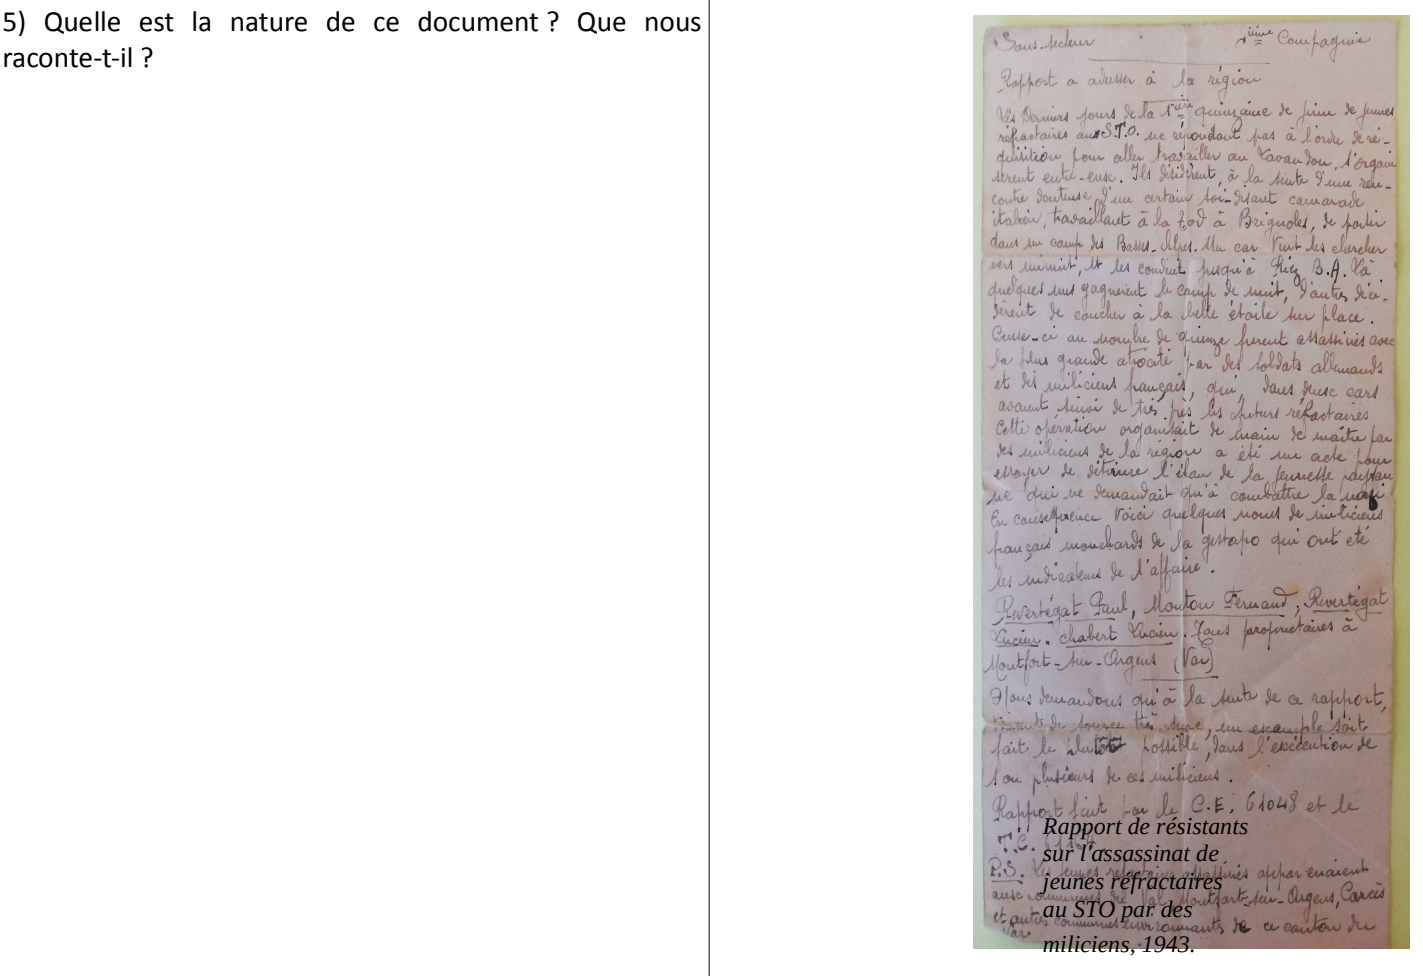 5) Quelle est la nature de ce document ? Que nous
raconte-t-il ?
Sous-secteur
1ième Compagnie
Rapport a adresser à la région
Les Derniers jours de la 1ière quinzaine de juin de jeunes
réfractaires au S.T.O. ne répondant pas à l'ordre de ré-
quisition pour aller travailler au Lavandou, s'organi
sèrent entre-eux. Ils désidèrent, à la suite d'une ren-
contre douteuse d'un certain soi-disant camarade
italien, travaillant à la Tod à Brignoles, de partir
dans un camp des Basses-Alpes. Un car vint les chercher
vers minuit, et les conduit jusqu'à Riez B.A. Là
quelques uns gagnèrent le camp de nuit, d'autres déci-
dèrent de coucher à la belle étoile sur place.
Ceux-ci au nombre de quinze furent assassinés avec
la plus grande atrocité par des soldats allemands
et des miliciens français, qui, dans deux cars
avaient suivi de très près les futurs réfractaires
Cette opération organisait de main de maître par
des miliciens de la région a été un acte pour
essayer de détruire l'élan de la jeunesse paysan
ne qui ne demandait qu'à combattre la
En conséquence voici quelques noms de miliciens
français mouchards de la gestapo qui ont été
les indicateurs de l'affaire.
Revertégat Paul, Mouton Fernand, Revertégat
Lucien. chabert Lucien. Tous propriétaires à
Montfort-sur-Argens (Var)
Nous demandons qu'à la suite de ce rapport,
de source très sure, un exemple soit
fait le plutôt possible, dans l'exécution de
1 ou plusieurs de ces miliciens.
Rapport faite par le C.E. 61048 et le
T.C.
P.S. Les jeunes réfractaires assassinés appartenaient
aux communes du Val, Montfort-sur-Argens, Carcès
et autres communes environnants de ce canton du
Var
Rapport de résistants
sur l'assassinat de
jeunes réfractaires
au STO par des
miliciens, 1943.